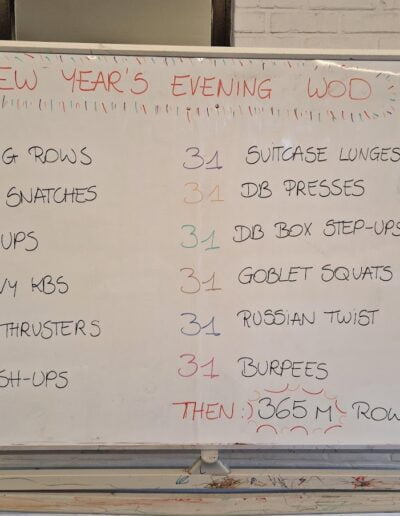 EW YEAR'S EVENING WOD
G ROWS
SNATCHES
UPS
VY KBS
THRUSTERS
SH-UPS
31 SUITCASE LUNGES
31 DB PRESSES
31 DB BOX STEP-UPS
31 GOBLET SQUATS
31 RUSSIAN TWIST
31 BURPEES
THEN :) 365 M ROW